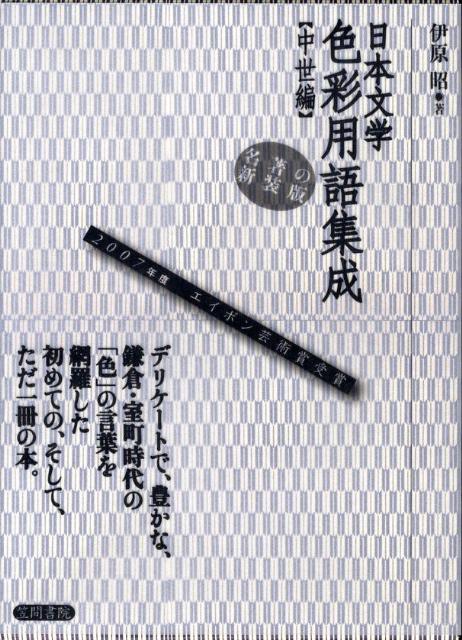 伊原 昭●著
日本文学
色彩用語集成
【中世編】
名著の
新装版
2007年度 エイボン芸術賞受賞
デリケートで、豊かな、
鎌倉・室町時代の
「色」の言葉を
網羅した
初めての、そして、
ただ一冊の本。
笠間書院